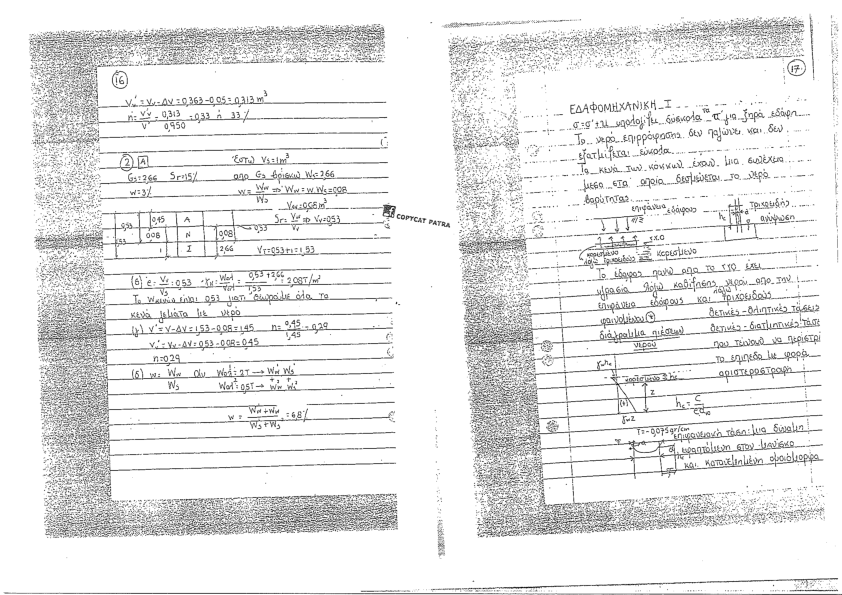 16
Vv' = Vv - ΔV = 0,363 - 0,05 = 0,313 m³
n = Vv'/V' = 0,313/0,950 = 0,33 ή 33%
2 A Έστω Vs = 1m³
Gs = 2,66 Sr = 15% απο Gs βρίσκω Ws = 2,66
w = 3% w = Ww/Ws => Ww = w Ws = 0,08
Vw = 0,08 m³
Sr = Vw/Vv => Vv = 0,53
0,53
0,45 A
0,53 0,08 N 0,08
1,53 1 I 2,66 VT = 0,53 + 1 = 1,53
(β) e = Vv/Vs = 0,53 γκ = Wολ/Vολ = 0,53 + 2,66/1,53 = 2,08 T/m³
Το Wκενών είναι 0,53 γιατί θεωρούμε όλα τα
κενά γεμάτα με νερό
(γ) V' = V - ΔV = 1,53 - 0,08 = 1,45 n = 0,45/1,45 = 0,29
Vv' = Vv - ΔV = 0,53 - 0,08 = 0,45
n = 0,29
(δ) w = Ww/Ws αν Wολ¹ = 2T → Ww Ws
Wολ² = 0,5T → Ww Ws
w = Ww + Ww/Ws + Ws = 6,8%
COPYCAT PATRA
17.
ΕΔΑΦΟΜΗΧΑΝΙΚΗ I
σ = σ' + u υπολογίζει δύσκολα τα π' για ξηρά εδάφη
Το νερό επιρρόφησης δεν παγώνει και δεν
εξατμίζεται εύκολα
Τα κενά των κόκκων έχουν μια συνέχεια
μέσα στα οποία δεσμεύεται το νερό
βαρύτητας
επιφάνεια εδάφους
τριχοειδής
ανύψωση
hc
ΣΧΟ
κορεσμένο
λόγω τριχοειδούς κορεσμένο
Το έδαφος πάνω απο το ΣΧΟ έχει
υγρασία λόγω καθίζησης νερού απο την
επιφάνεια εδάφους και λόγω τριχοειδούς
φαινομένου
θετικές - θλιπτικές τάσεις
διάγραμμα πιέσεων
νερού
θετικές - διατμητικές τάσε
που τείνουν να περιστρέ
το επίπεδο με φορά
αριστερόστροφη
γwhc
κορεσμένο hc
z
(+)
γwz
hc = C/ed10
T = -0,075 gr/cm
επιφανειακή τάση: μια δύναμη
εφαπτόμενη στον μηνίσκο
και κατανεμημένη ομοιόμορφα